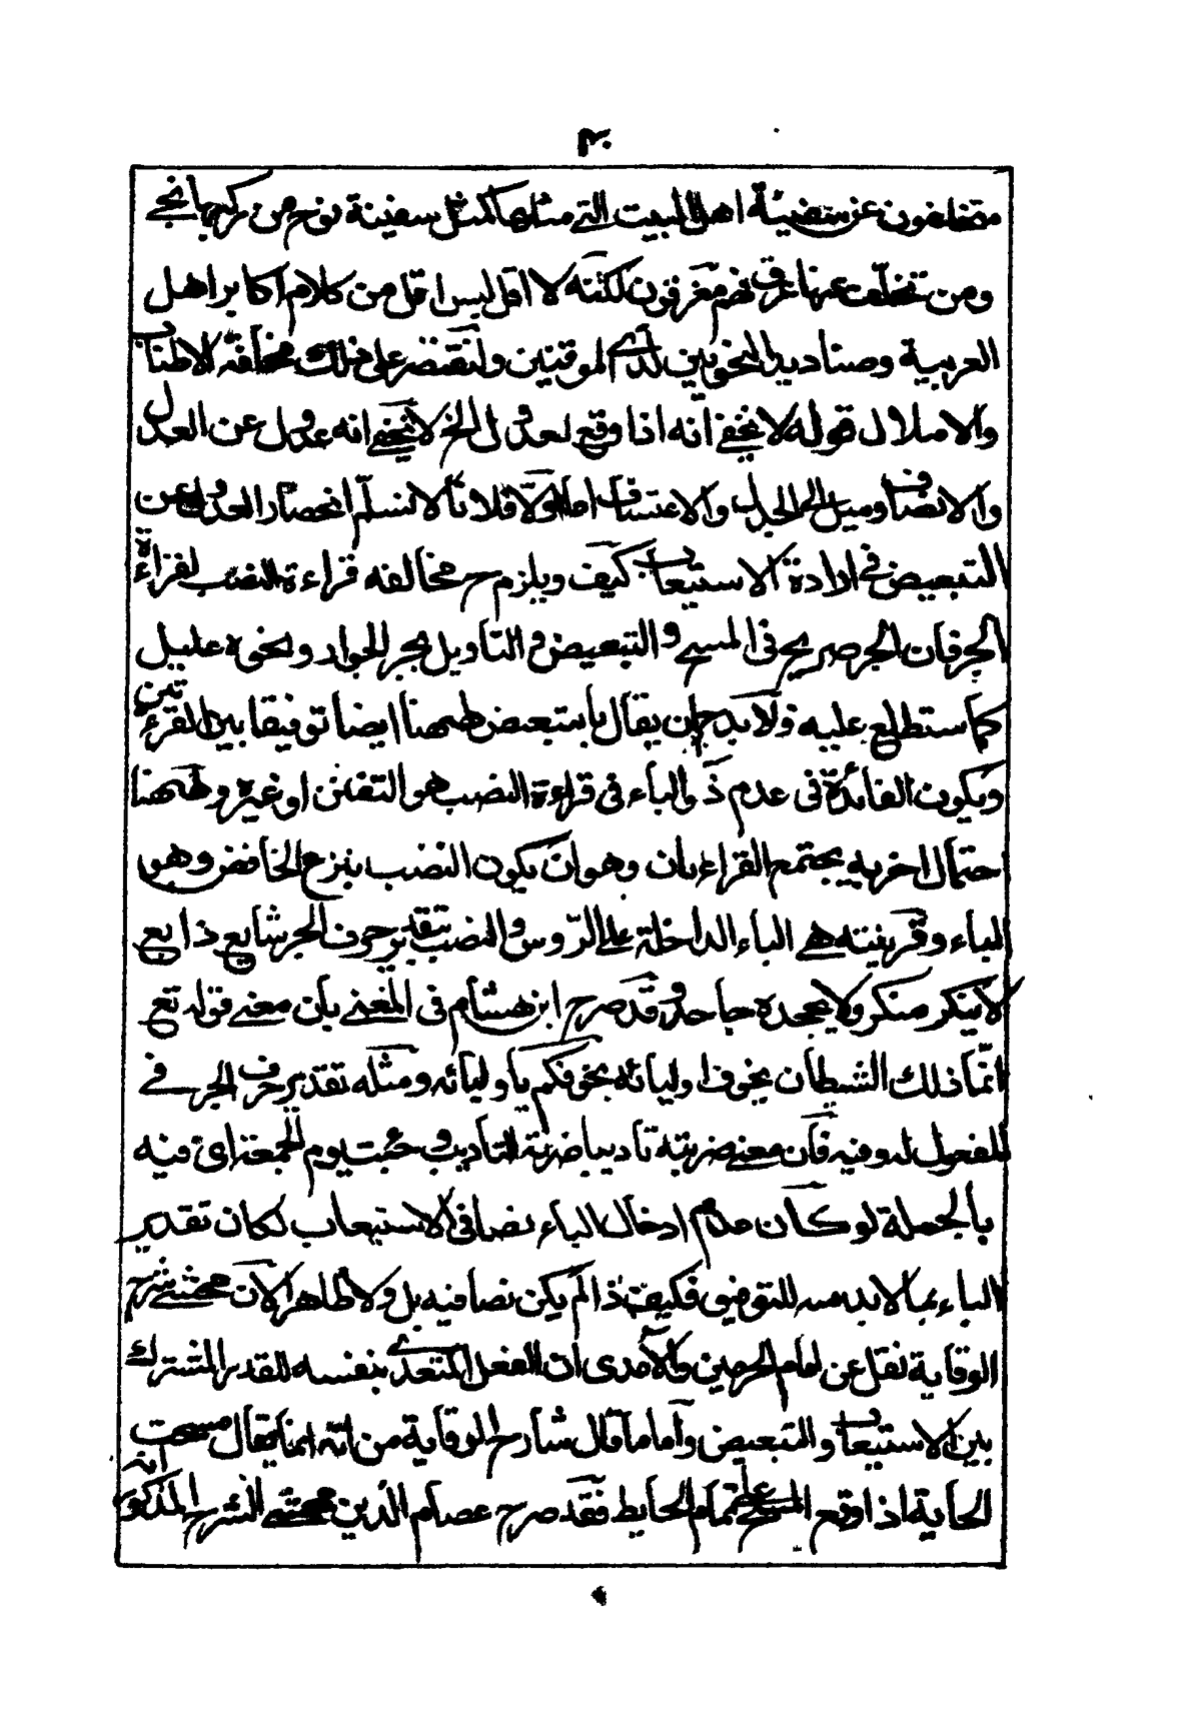 ٣٠
متخلفون عن سفينة اهل البيت التي مثلها كمثل سفينة نوح من ركبها نجى
ومن تخلف عنها غرق فهم مغرقون لكنه لا اقل ليس اقل من كلام اكابر اهل
العربية وصناديد النحويين لدى الموقنين ولنقتصر على ذلك مخافة الاطناب
والاملال قوله لا يخفى انه اذا وقع لعدول الخ لا يخفى انه عدول عن العدل
والانصاف وميل الى الجدل والاعتساف اما اولا فلانا لا نسلم انحصار العدول عن
التبعيض في ارادة الاستيعاب كيف ويلزم ح مخالفه قراءة النصب لقراءة
الجر فان الجر صريح في المسح والتبعيض والتاويل بجر الجوار ونحوه عليل
كما ستطلع عليه ولابد ح ان يقال بالتبعيض ههنا ايضا توفيقا بين القرءتين
ويكون الفائدة في عدم ذكر الباء في قراءة النصب هو التفنن او غيره وههنا
احتمال اخر به يجتمع القراءتان وهو ان يكون النصب بنزع الخافض وهو
الباء وقرينته هي الباء الداخلة على الرؤس والنصب بتقدير حرف الجر شايع ذايع
لا ينكر منكر ولا يجحده جاحد وقد صرح ابن هشام في المغني بان معنى قوله تع
انما ذلك الشيطان يخوف اوليائه يخوفكم باوليائه ومثله تقدير حرف الجر في
المفعول له وفيه فان معنى ضربته تاديبا ضربته للتاديب وجئت يوم الجمعة اي فيه
بالجملة لو كان عدم ادخال الباء نصا في الاستيعاب لكان تقدير
الباء بما لابد منه للتوفيق فكيف اذا لم يكن نصا فيه بل ولا ظاهرا لان محشي شرح
الوقاية نقل عن امام الحرمين والآمدى ان الفعل المتعدى بنفسه للقدر المشترك
بين الاستيعاب والتبعيض واما ما قال شارح الوقاية من انه انما يقال مسحت
الحايط اذا وقع المسح على تمام الحايط فقد صرح عصام الدين محشي الشرح المذكور انه